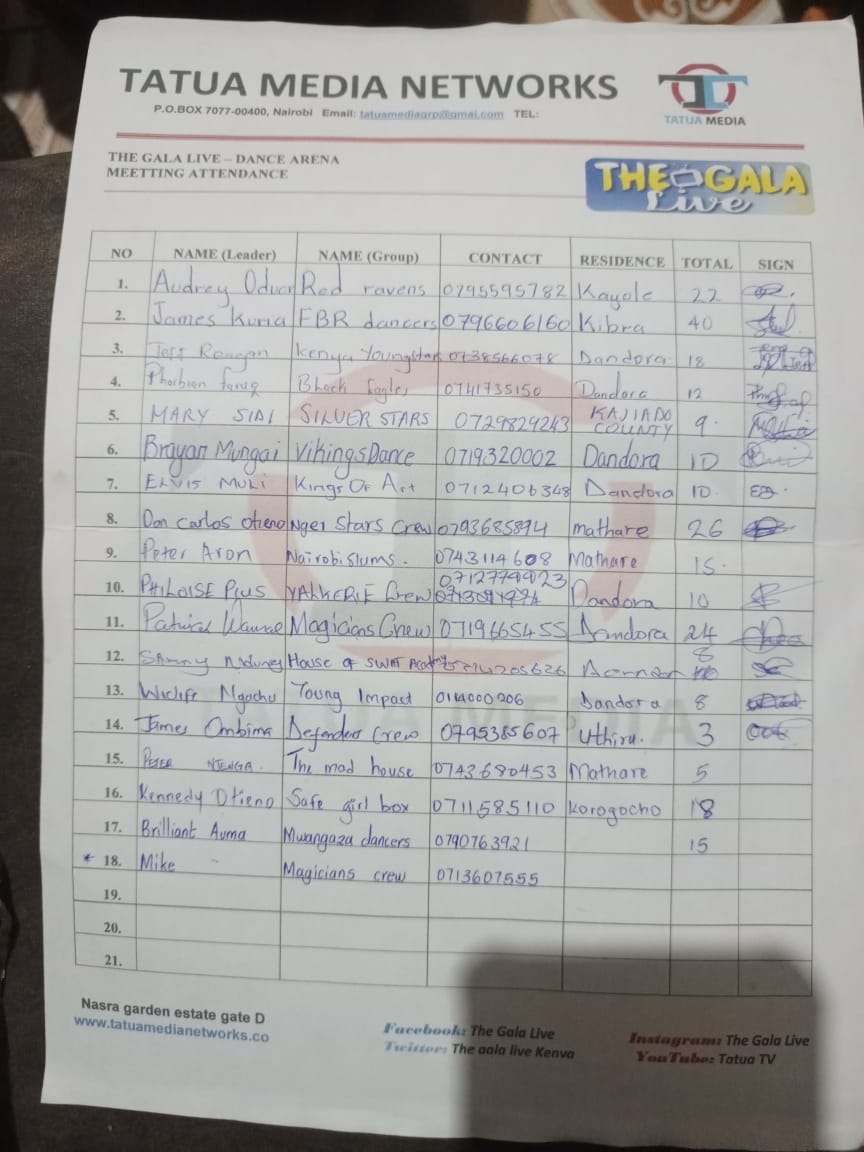 TATUA MEDIA NETWORKS
P.O.BOX 7077-00400, Nairobi Email: tatuamediagrp@gmai.com TEL:
TATUA MEDIA
THE GALA LIVE – DANCE ARENA
MEETTING ATTENDANCE
THE GALA
Live
NO NAME (Leader) NAME (Group) CONTACT RESIDENCE TOTAL SIGN
1. Audrey Oduor Red ravens 0795595782 Kayole 22
2. James Kuria FBR dancers 0796606160 Kibra 40
3. Jeff Reagan Kenya Youngstars 0738566078 Dandora 18
4. Black Eagles 0741735150 Dandora 12
5. MARY SIDI SILVER STARS 0729829243 KAJIADO COUNTY 9.
6. Brayan Mungai Vikings Dance 0719320002 Dandora 10
7. ELVIS MULI Kings Of Art 0712406348 Dandora 10.
8. Don carlos otieno Nger Stars Crew 0793685894 mathare 26
9. Peter Aron Nairobi slums. 0743114608 Mathare 15.
10. PHILOISE PIUS YALKERIE Crew 0712779923 Dandora 10
11. Patrick Wayne Magicians Crew 0719665455 Dandora 24
12. Sammy House of SWAT Academy 8
13. Wiclife Ngochu Young Impact 0114000206 Dandora 8
14. James Ombima Defenders Crew 0795385607 Uthiru. 3
15. PETER NJENGA. The mad house 0743680453 Mathare 5
16. Kennedy Otieno Safe girl box 0711585110 Korogocho 18
17. Brilliant Auma Mwangaza dancers 0790763921 15
* 18. Mike Magicians crew 0713607555
19.
20.
21.
TATUA MEDIA
Nasra garden estate gate D
www.tatuamedianetworks.co
Facebook: The Gala Live
Twitter: The gala live Kenya
Instagram: The Gala Live
YouTube: Tatua TV